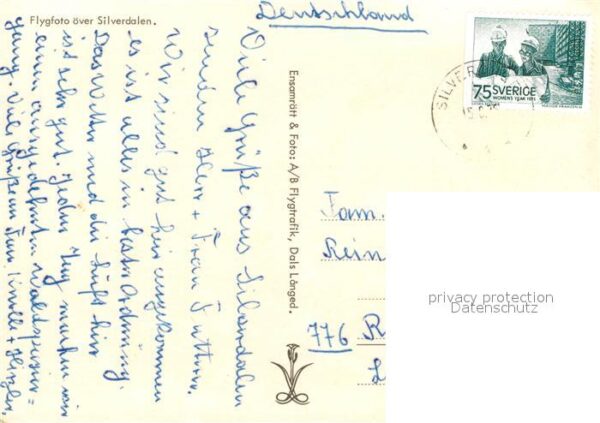 Flygfoto över Silverdalen.
Viele Grüße aus Silverdalen
senden Herr + Frau
Wir sind gut hier angekommen
es ist alles in bester Ordnung.
Das Wetter und die Luft hier
ist sehr gut. Jeden Tag machen wir
einen ausgedehnten Waldspazier=
gang. Viele Grüße an Fam.
Ensamrätt & Foto: A/B Flygtrafik, Dals Långed.
Deutschland
75 SVERIGE
WOMEN'S YEAR 1975
SILVER
Fam.
Rein
776 R
privacy protection
Datenschutz